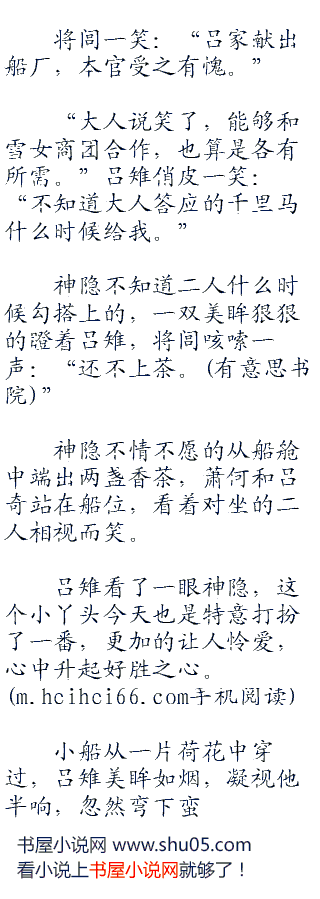 将闾一笑：“吕家献出
船厂，本官受之有愧。”
“大人说笑了，能够和
雪女商团合作，也算是各有
所需。”吕雉俏皮一笑：
“不知道大人答应的千里马
什么时候给我。”
神隐不知道二人什么时
候勾搭上的，一双美眸狠狠
的蹬着吕雉，将闾咳嗦一
声：“还不上茶。(有意思书
院)”
神隐不情不愿的从船舱
中端出两盏香茶，萧何和吕
奇站在船位，看着对坐的二
人相视而笑。
吕雉看了一眼神隐，这
个小丫头今天也是特意打扮
了一番，更加的让人怜爱，
心中升起好胜之心。
(m.hcihci66.com手机阅读)
小船从一片荷花中穿
过，吕雉美眸如烟，凝视他
半响，忽然弯下蛮
书屋小说网 www.shu05.com
看小说上书屋小说网就够了！